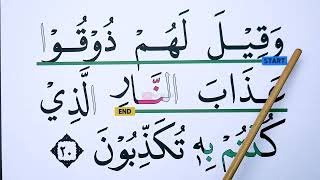 وَقِيلَ لَهُمْ ذُوقُوا
START
عَذَابَ النَّارِ الَّذِي
END
كُنْتُمْ بِهِ تُكَذِّبُونَ ٢٠